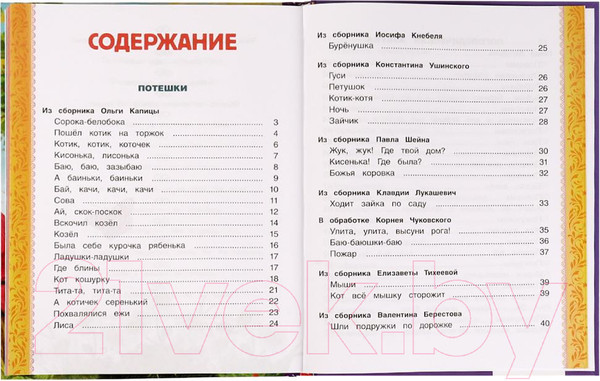 СОДЕРЖАНИЕ
ПОТЕШКИ
Из сборника Ольги Капицы
Сорока-белобока 3
Пошёл котик на торжок 4
Котик, котик, коточек 6
Кисонька, писонька 7
Баю, баю, зазыбаю 8
А баиньки, баиньки 9
Бай, качи, качи, качи 10
Сова 11
Ай, скок-поскок 12
Вскочил козёл 14
Козёл 15
Была себе курочка рябенька 16
Ладушки-ладушки 17
Где блины 17
Кот кошурку 18
Тита-та, тита-та 21
А котичек серенький 22
Похвалялися ежи 23
Лиса 24
Из сборника Иосифа Кнебеля
Бурёнушка 25
Из сборника Константина Ушинского
Гуси 26
Петушок 26
Котик-котя 27
Ночь 27
Зайчик 28
Из сборника Павла Шейна
Жук, жук! Где твой дом? 30
Кисенька! Где была? 31
Божья коровка 32
Из сборника Клавдии Лукашевич
Ходит зайка по саду 33
В обработке Корнея Чуковского
Улита, улита, высуни рога! 35
Баю-баюшки-баю 36
Пожар 37
Из сборника Елизаветы Тихеевой
Мыши 39
Кот всё мышку сторожит 39
Из сборника Валентина Берестова
Шли подружки по дорожке 40
21vek.by
21vek.by